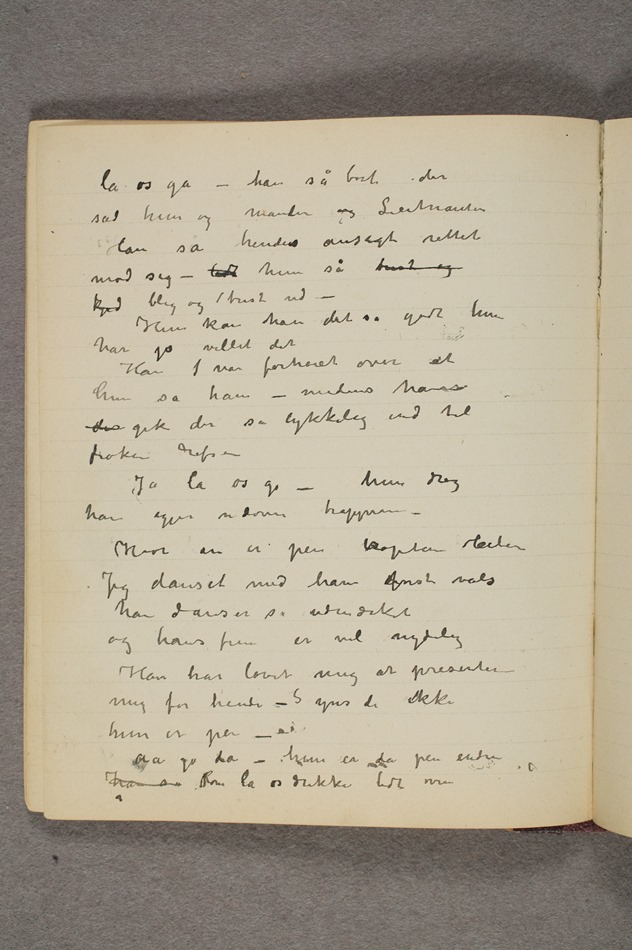 la os ga – han så bort der
sad hun og mander og Leitnanten
Han sa hendes ansigt rettet
mod seg – lidt hun så trist og
kjed bleg og trist ud –
Hun kan ha det sa godt hun
har jo villet det
Han var forharet over at
hun sa ham – medens han
der gik der sa lykkelig ind til
frøken
Ja la os go – hun drog
han nedover trappene –
Hvor han er pen kaptein
Jeg danset med ham første vals
han danser sa udmerket
og hans frue er vel nydelig
Han har lovet mig at presentere
mig for hende – Synes de ikke
hun er pen –
aa jo da – hun er da pen endnu
Kom la os drikke lidt